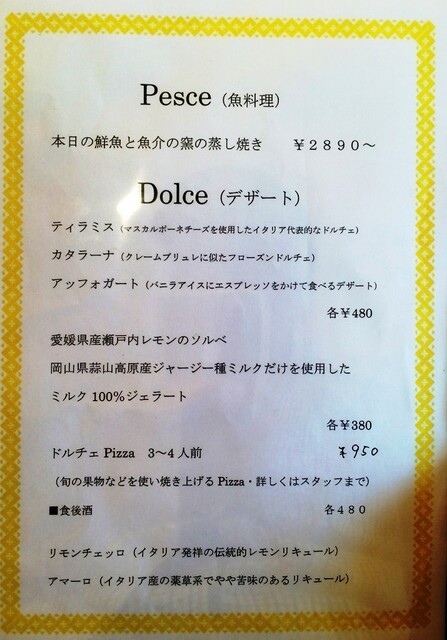 Pesce（魚料理）
本日の鮮魚と魚介の窯の蒸し焼き　￥２８９０～
Dolce（デザート）
ティラミス（マスカルポーネチーズを使用したイタリア代表的なドルチェ）
カタラーナ（クレームブリュレに似たフローズンドルチェ）
アッフォガート（バニラアイスにエスプレッソをかけて食べるデザート）
各￥480
愛媛県産瀬戸内レモンのソルベ
岡山県蒜山高原産ジャージー種ミルクだけを使用した
ミルク 100％ジェラート
各￥380
ドルチェ Pizza　3～4 人前　￥950
（旬の果物などを使い焼き上げる Pizza・詳しくはスタッフまで）
■食後酒　各４８０
リモンチェッロ（イタリア発祥の伝統的レモンリキュール）
アマーロ（イタリア産の薬草系でやや苦味のあるリキュール）